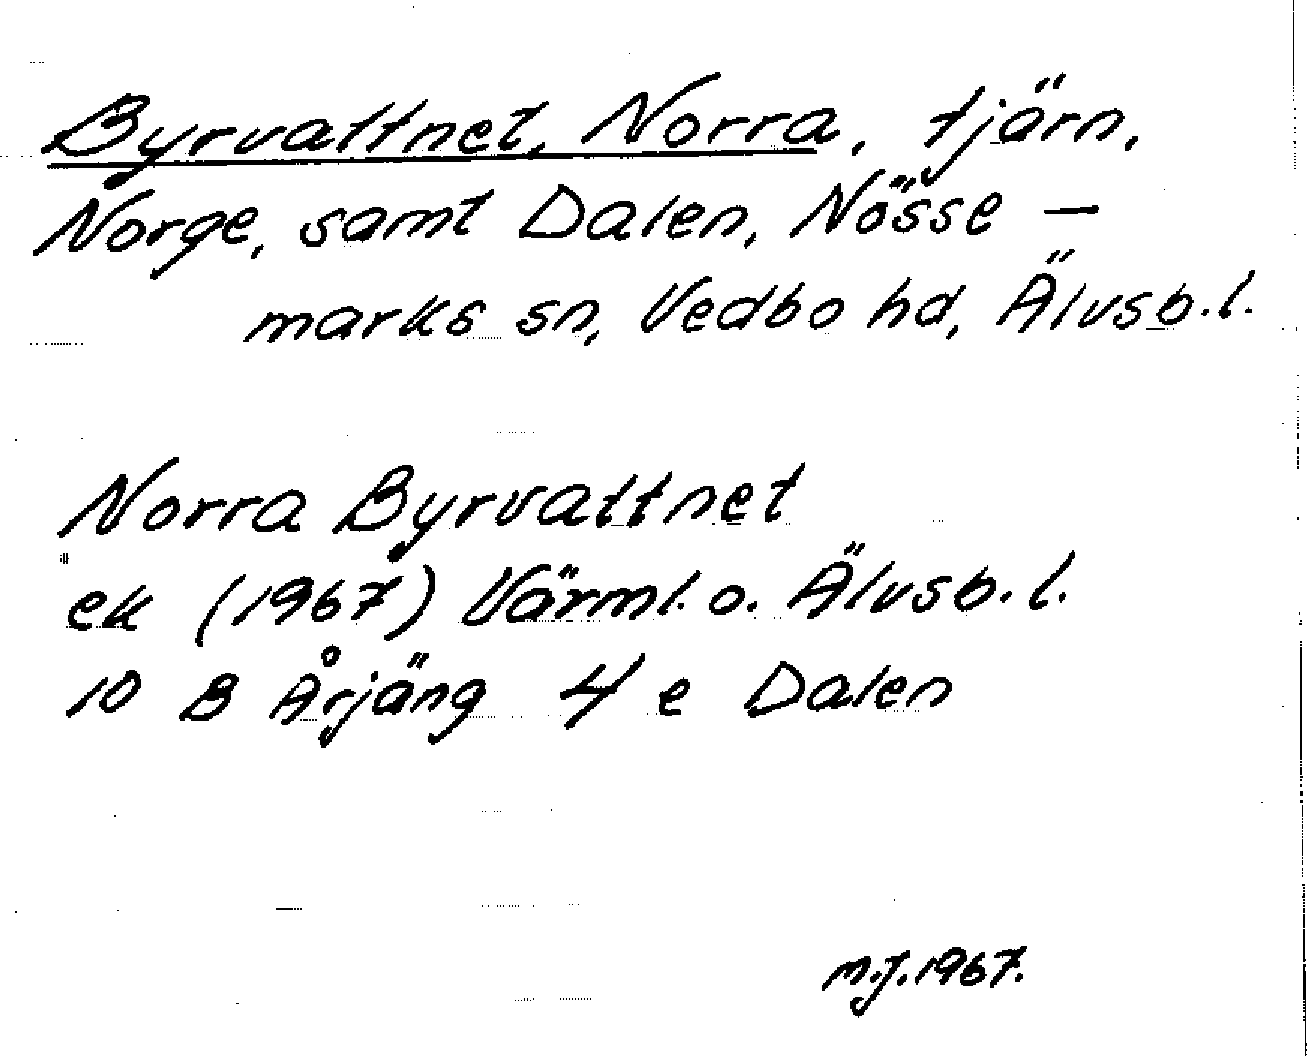 Byrvattnet, Norra, tjärn,
Norge, samt Dalen, Nösse-
marks sn, Vedbo hd, Älvsb.l.
Norra Byrvattnet
ek (1967) Värml. o. Älvsb. l.
10 B Årjäng 4 e Dalen
M.J. 1967.